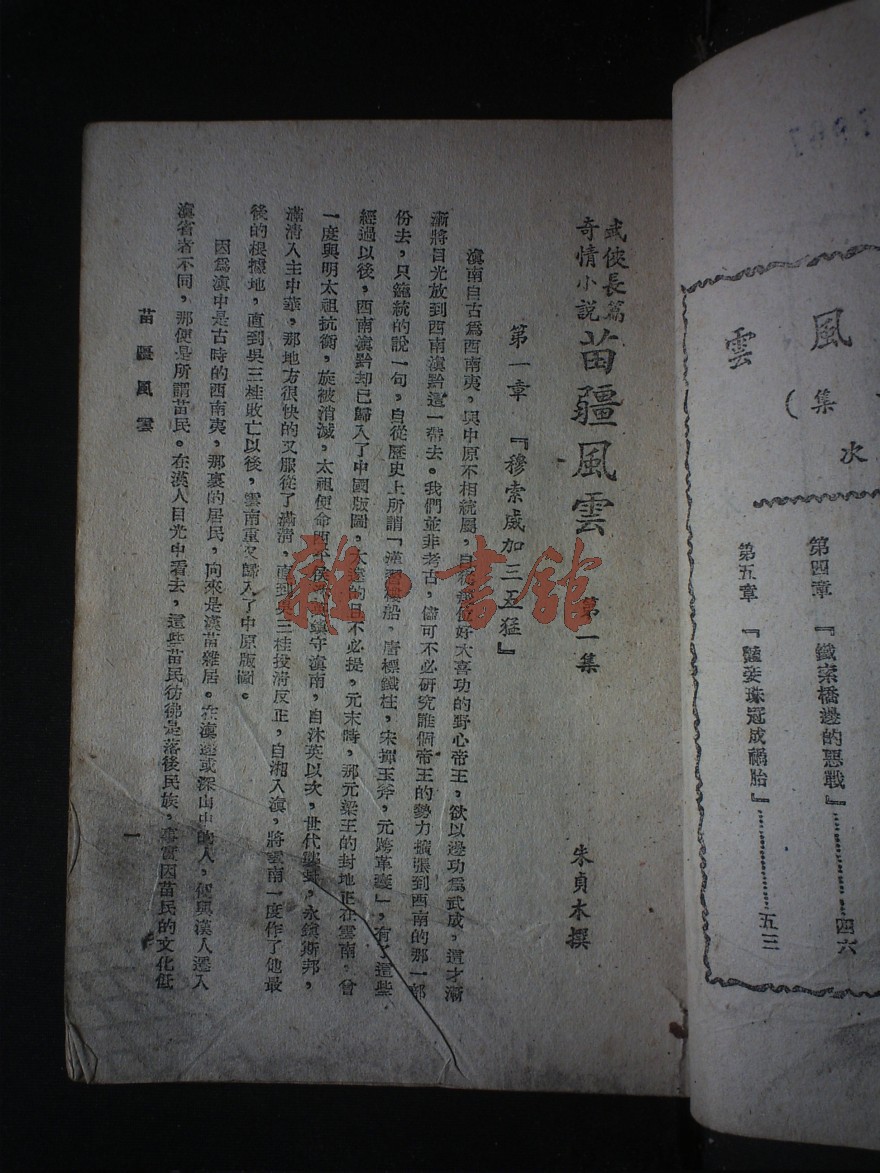 風
雲
集
（
次
第四章 『鐵索橋邊的惡戰』…………四六
第五章 『豔妾珠冠成禍胎』…………五三
武俠長篇
奇情小說
苗疆風雲 第一集
朱貞木撰
第一章 『穆索威加三五猛』
滇南自古爲西南夷，與中原不相統屬，自從幾位好大喜功的野心帝王，欲以邊功爲武威，這才漸
漸將目光放到西南滇黔這一帶去。我們並非考古，儘可不必研究誰個帝王的勢力擴張到西南的那一部
份去，只籠統的說一句，自從歷史上所謂「漢習樓船，唐標鐵柱，宋揮玉斧，元跨革囊」，有了這些
經過以後，西南滇黔却已歸入了中國版圖，太遠的且不必提，元末時，那元梁王的封地正在雲南，曾
一度與明太祖抗衡，旋被消滅，太祖便命西平侯鎮守滇南，自沐英以次，世代襲封，永鎮斯邦，
滿清入主中華，那地方很快的又服從了滿清，直到吳三桂投清反正，自湘入滇，將雲南一度作了他最
後的根據地，直到吳三桂敗亡以後，雲南重又歸入了中原版圖。
因爲滇中是古時的西南夷，那裏的居民，向來是漢苗雜居。在滇邊或深山中的人，便與漢人遷入
滇省者不同，那便是所謂苗民。在漢人目光中看去，這些苗民彷彿是落後民族，事實因苗民的文化低
苗疆風雲
一
雜·書館